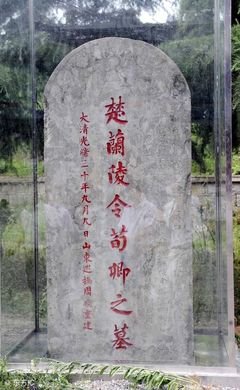 楚蘭陵令荀卿之墓
大清光緒三十年九月九日山東巡撫周馥重建